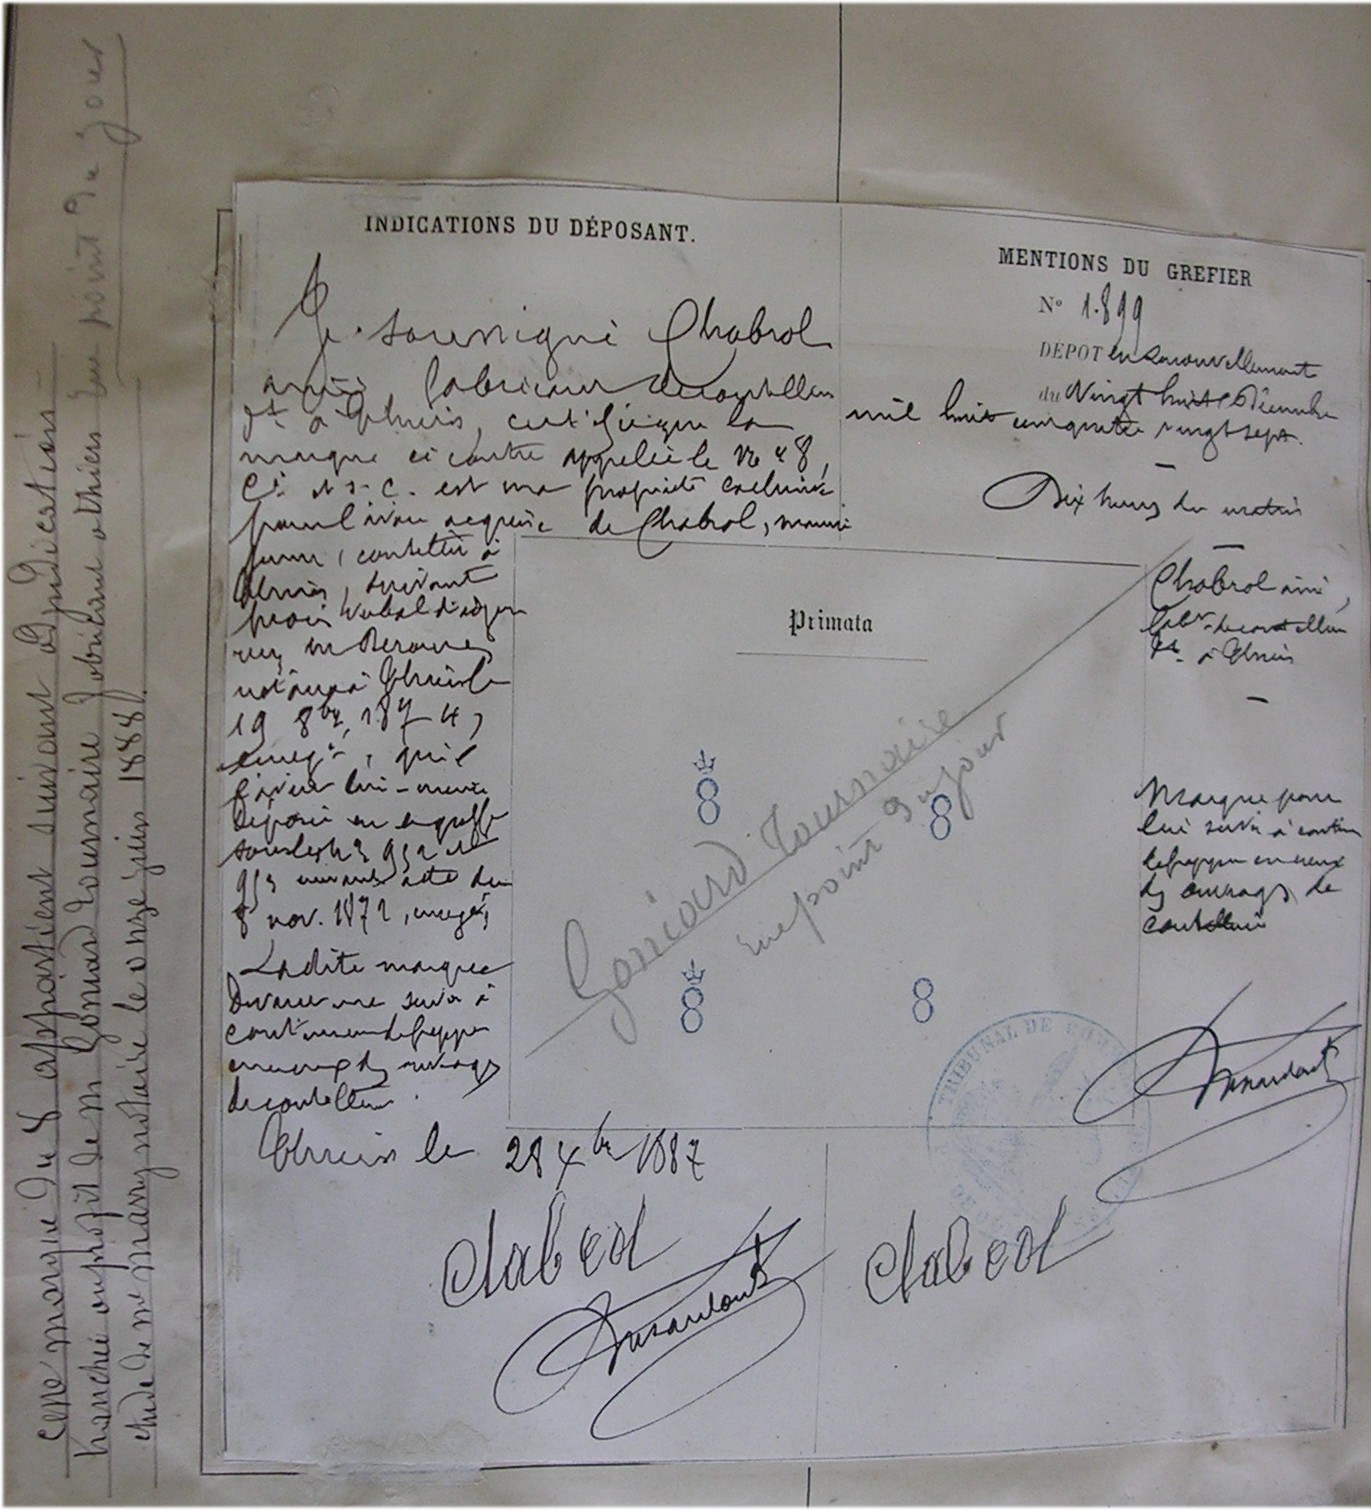 INDICATIONS DU DÉPOSANT.
Je soussigné Chabrol
ainé fabricant de coutellerie
dt à Thiers, certifie que la
marque ci contre appelée le No 8,
est ma propriété exclusive
pour l'avoir acquise de Chabrol,
coutelier à
Thiers, suivant
procès verbal
notaire à Thiers le
19 8bre 1874,
enregé, qui
l'avait lui-même
déposée au greffe
sous les n 952 et
953 suivant acte du
8 nov. 1872, enregé,
Ladite marque
devant me servir à
continuer de frapper
en creux des ouvrages
de coutellerie.
Thiers le 28 Xbre 1887
Chabrol
MENTIONS DU GREFIER
No 1.899
DÉPOT en renouvellement
du Vingt huit Décembre
mil huit cent quatre vingt sept.
Dix heures du matin
Chabrol ainé,
fabt de coutellerie
dt à Thiers
Marque pour
lui servir à continuer
de frapper en creux
des ouvrages de
coutellerie
Primata
8
8
8
8
Gouriard Tournaire
rue point du jour
TRIBUNAL DE COMM
Chabrol
Cette marque du 8 appartient suivant adjudication
tranchée au profit de M Tournaire fabricant à thiers rue point du jour
étude de Me notaire le onze juin 1888.